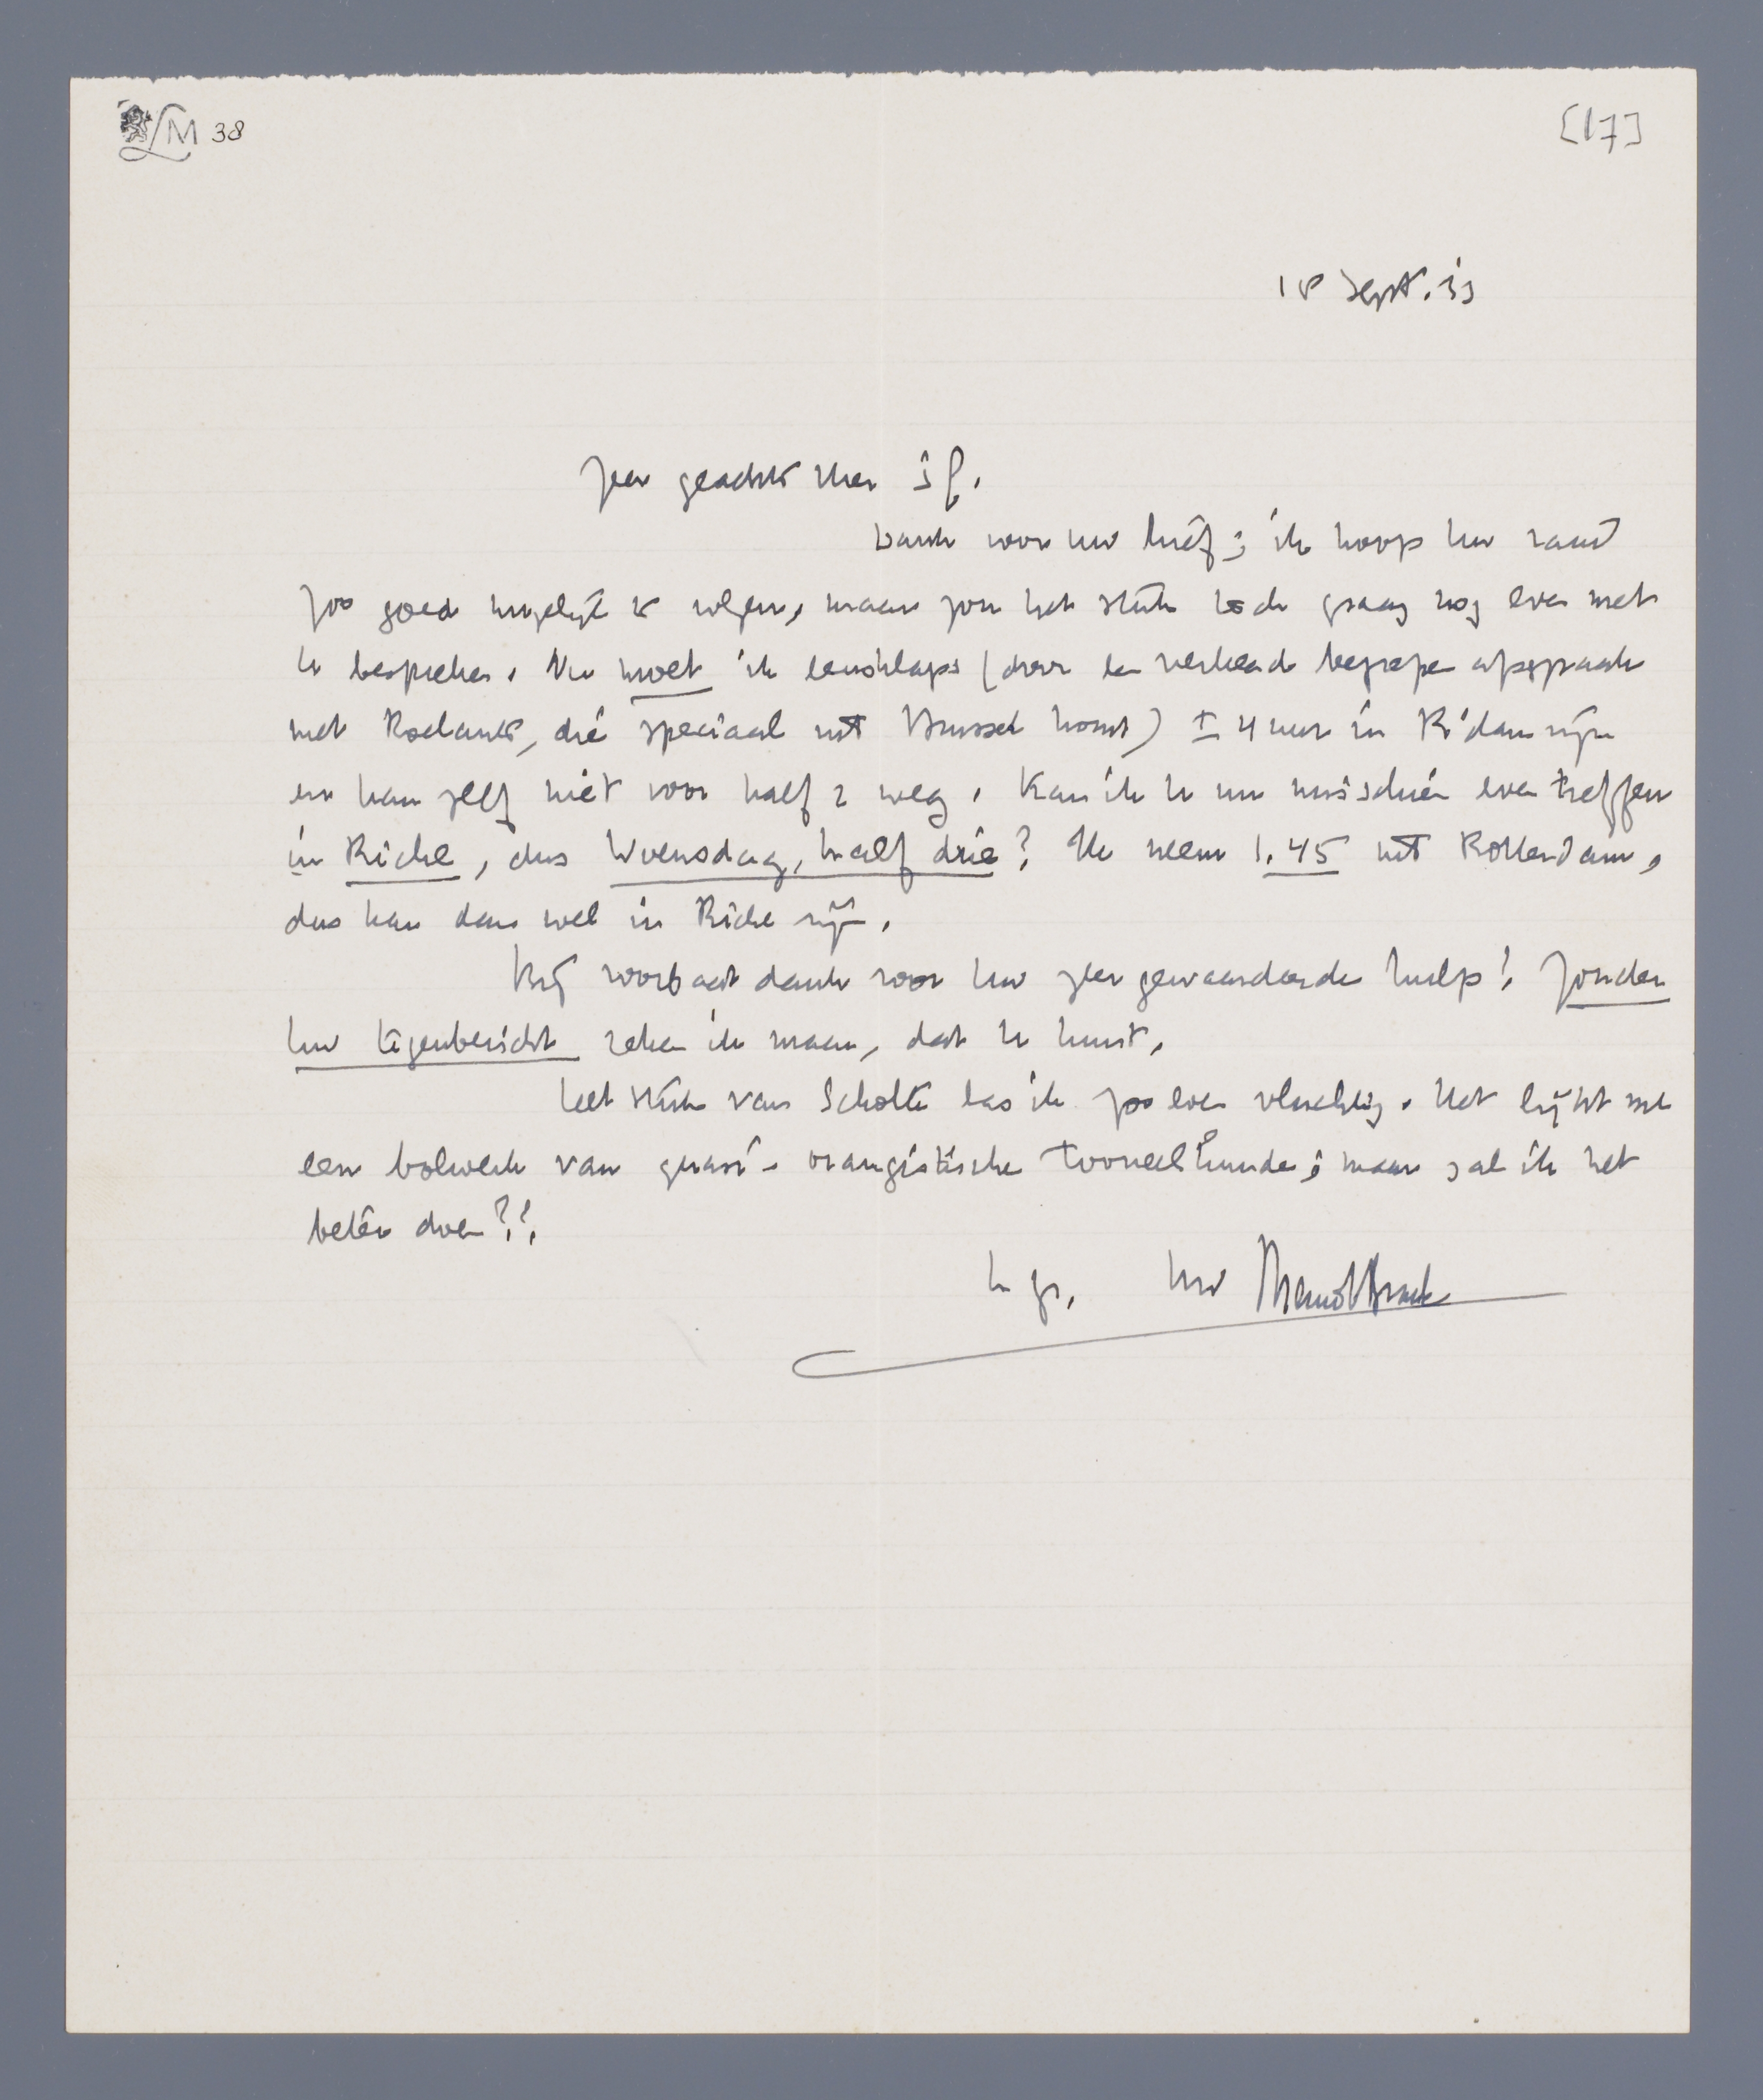 LM 38
[17]
18 Sept. 33
Zeer geachte Heer S f.
Dank voor uw brief; ik hoop Uw raad
zoo goed mogelijk te volgen, maar zou het stuk toch graag nog even met
U bespreken. Nu moet ik eenslags (door een verkeerd begrepen afspraak
met Roelants, die speciaal uit Brussel komt) ± 4 uur in R'dam zijn
en kan zelf niet voor half 2 weg. Kan ik U nu misschien even treffen
in Riche, dus Woensdag, half drie? Ik neem 1.45 uit Rotterdam,
dus kan dan wel in Riche zijn.
Bij voorbaat dank voor Uw zeer gewaardeerde hulp! Zonder
Uw tegenbericht reken ik maar, dat U komt.
Het stuk van Scholte las ik zoo even vluchtig. Het lijkt me
een bolwerk van quasi-orangistische tooneelkunde; maar zal ik het
beter doen??
h. gr. Uw Menno ter Braak